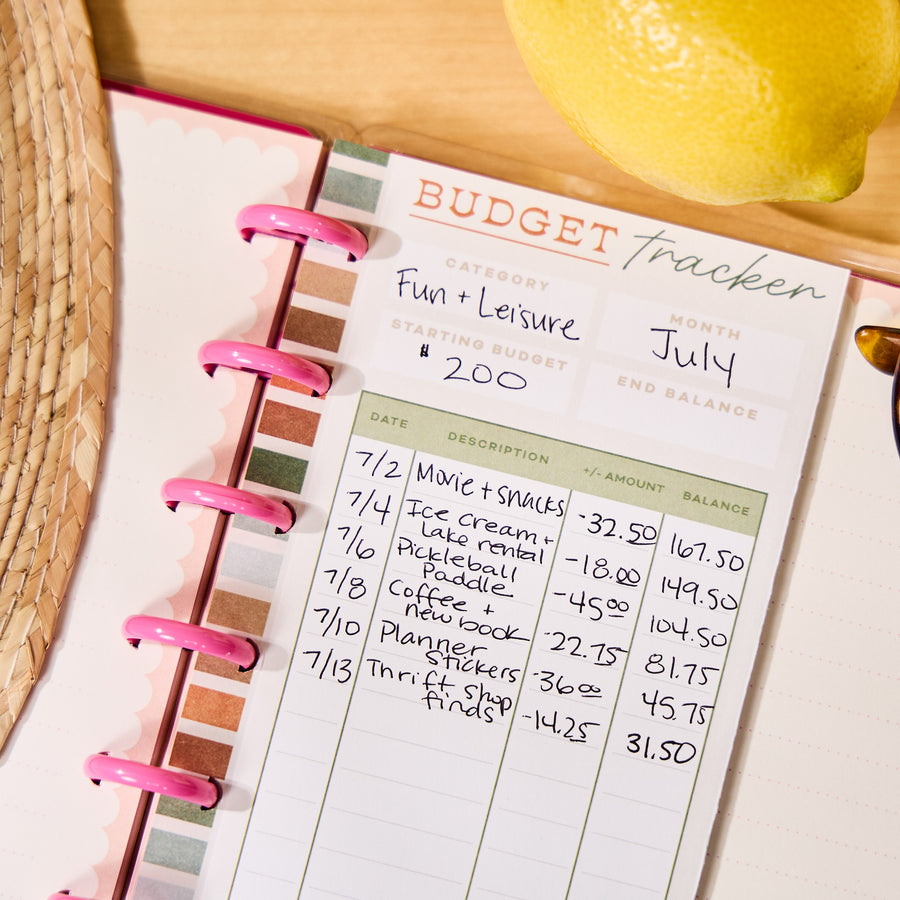 BUDGET tracker
CATEGORY
Fun + Leisure
MONTH
July
STARTING BUDGET
$200
END BALANCE
DATE DESCRIPTION +/- AMOUNT BALANCE
7/2 Movie + snacks -32.50 167.50
7/4 Ice cream +
lake rental -18.00 149.50
7/6 Pickleball
Paddle -45.00 104.50
7/8 Coffee +
new book -22.75 81.75
7/10 Planner
Stickers -36.00 45.75
7/13 Thrift shop
finds -14.25 31.50